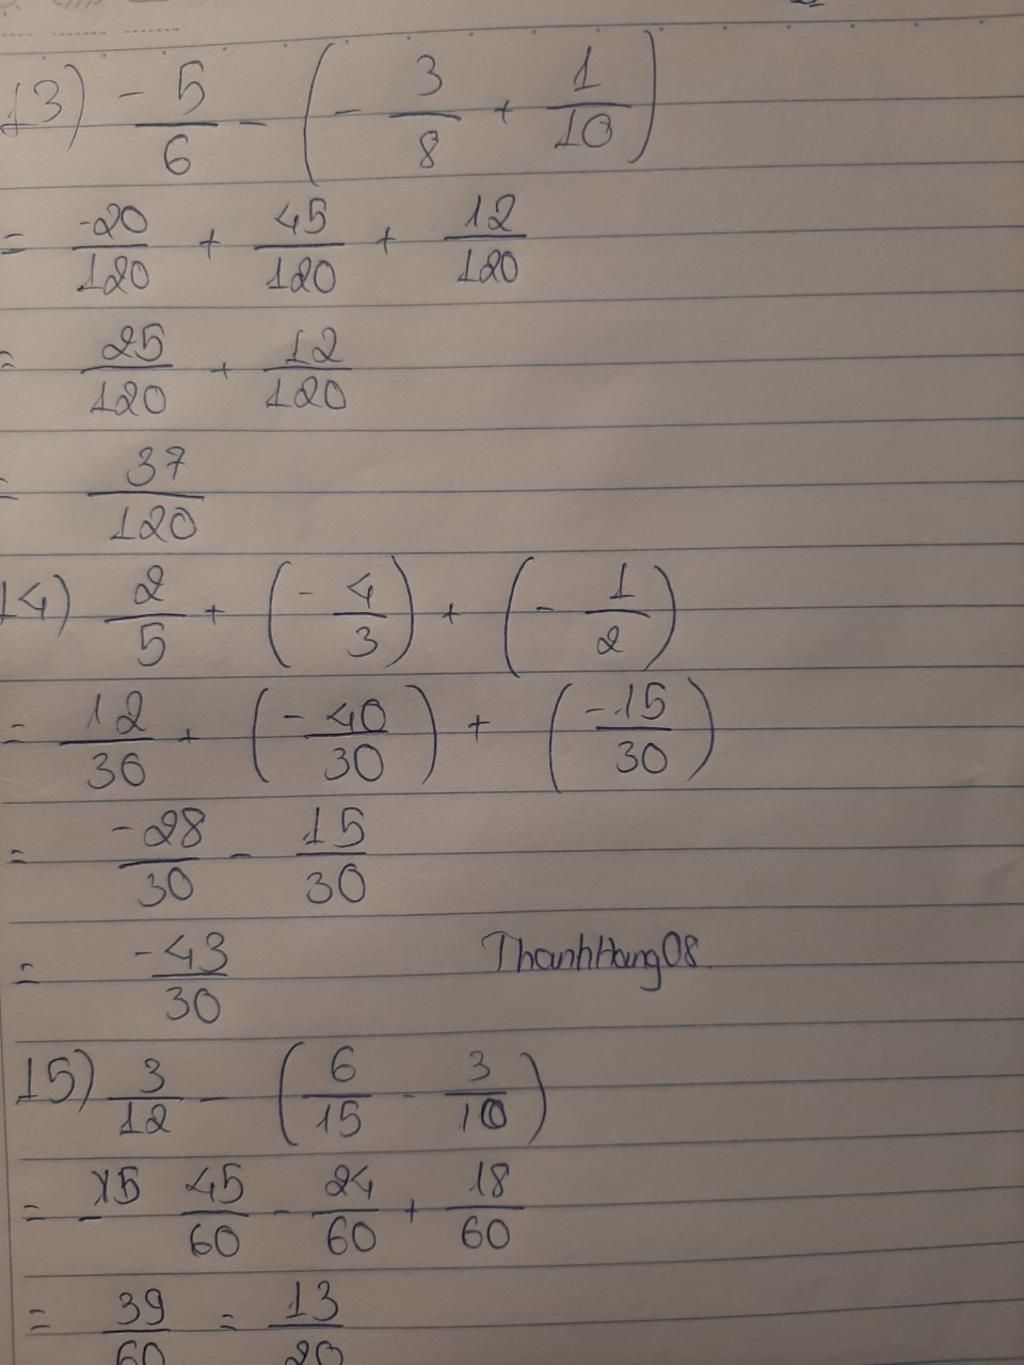 13) - 5/6 - (- 3/8 + 1/10)
= -20/120 + 45/120 + 12/120
= 25/120 + 12/120
= 37/120
14) 2/5 + (- 4/3) + (- 1/2)
= 12/30 + (- 40/30) + (-15/30)
= -28/30 - 15/30
= -43/30
ThanhHang08.
15) 3/12 - (6/15 - 3/10)
= 45/60 - 24/60 + 18/60
= 39/60 = 13/20